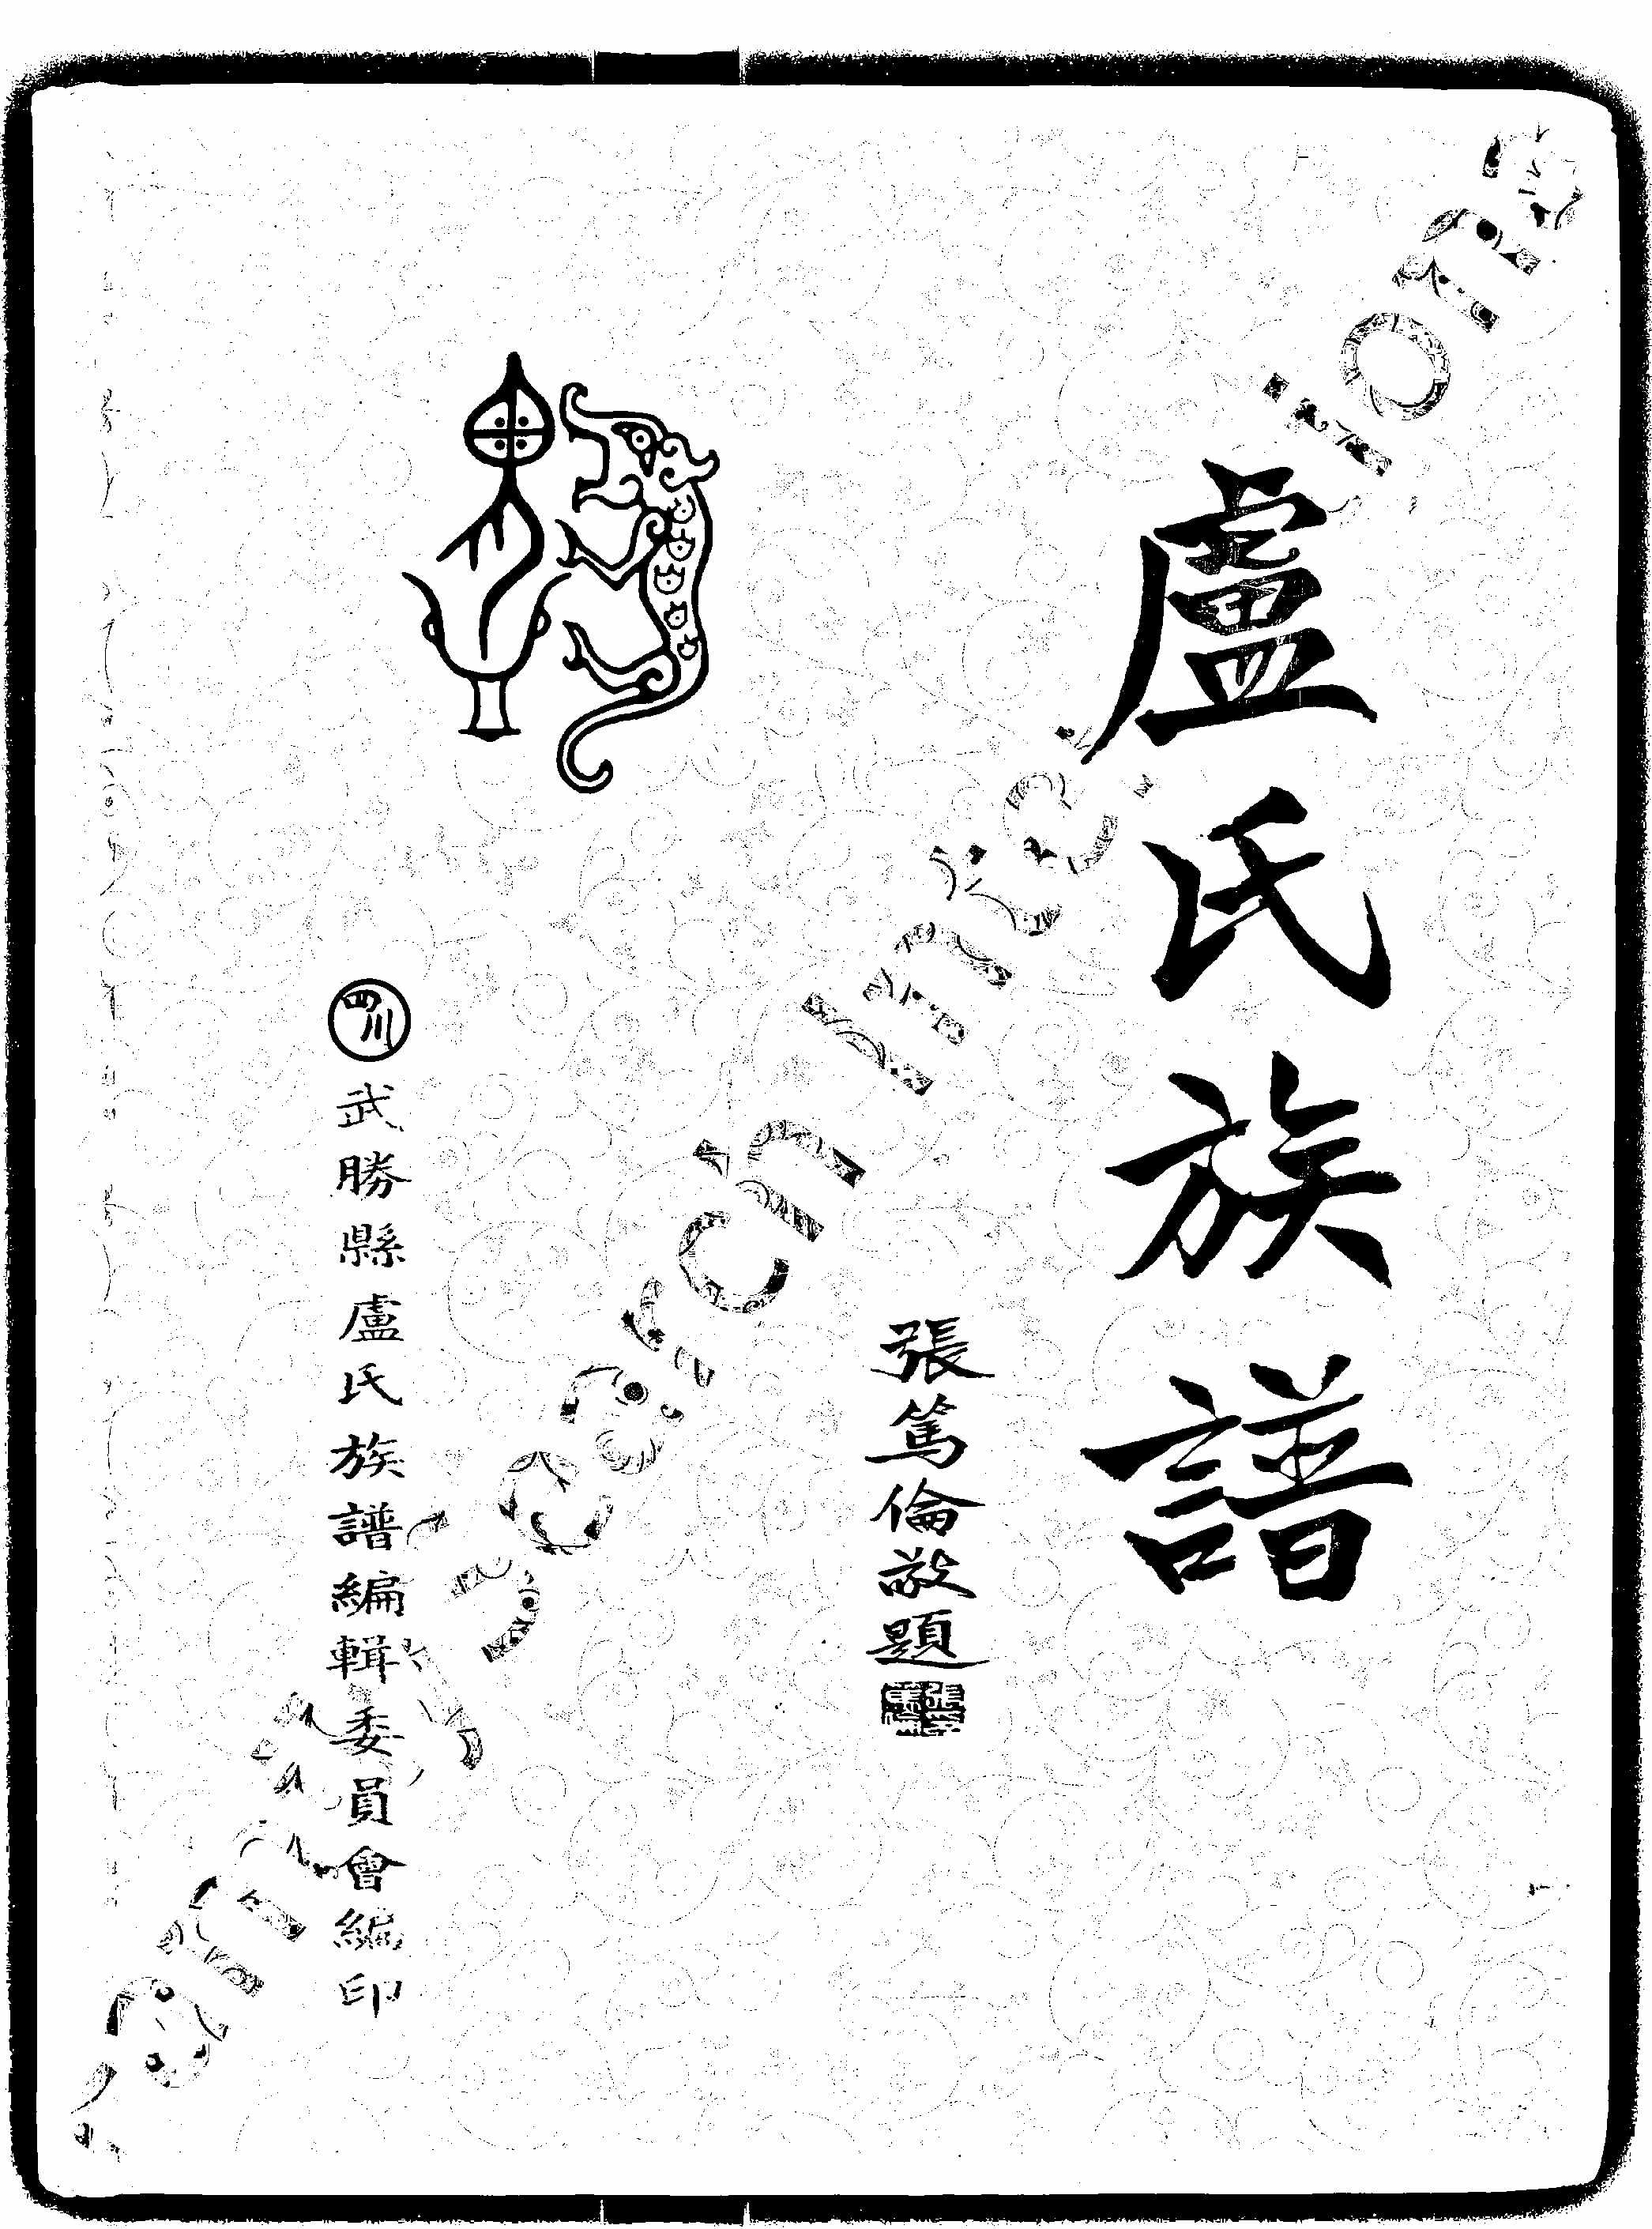 盧氏族譜
張篤倫敬題
四川
武勝縣盧氏族譜編輯委員會編印